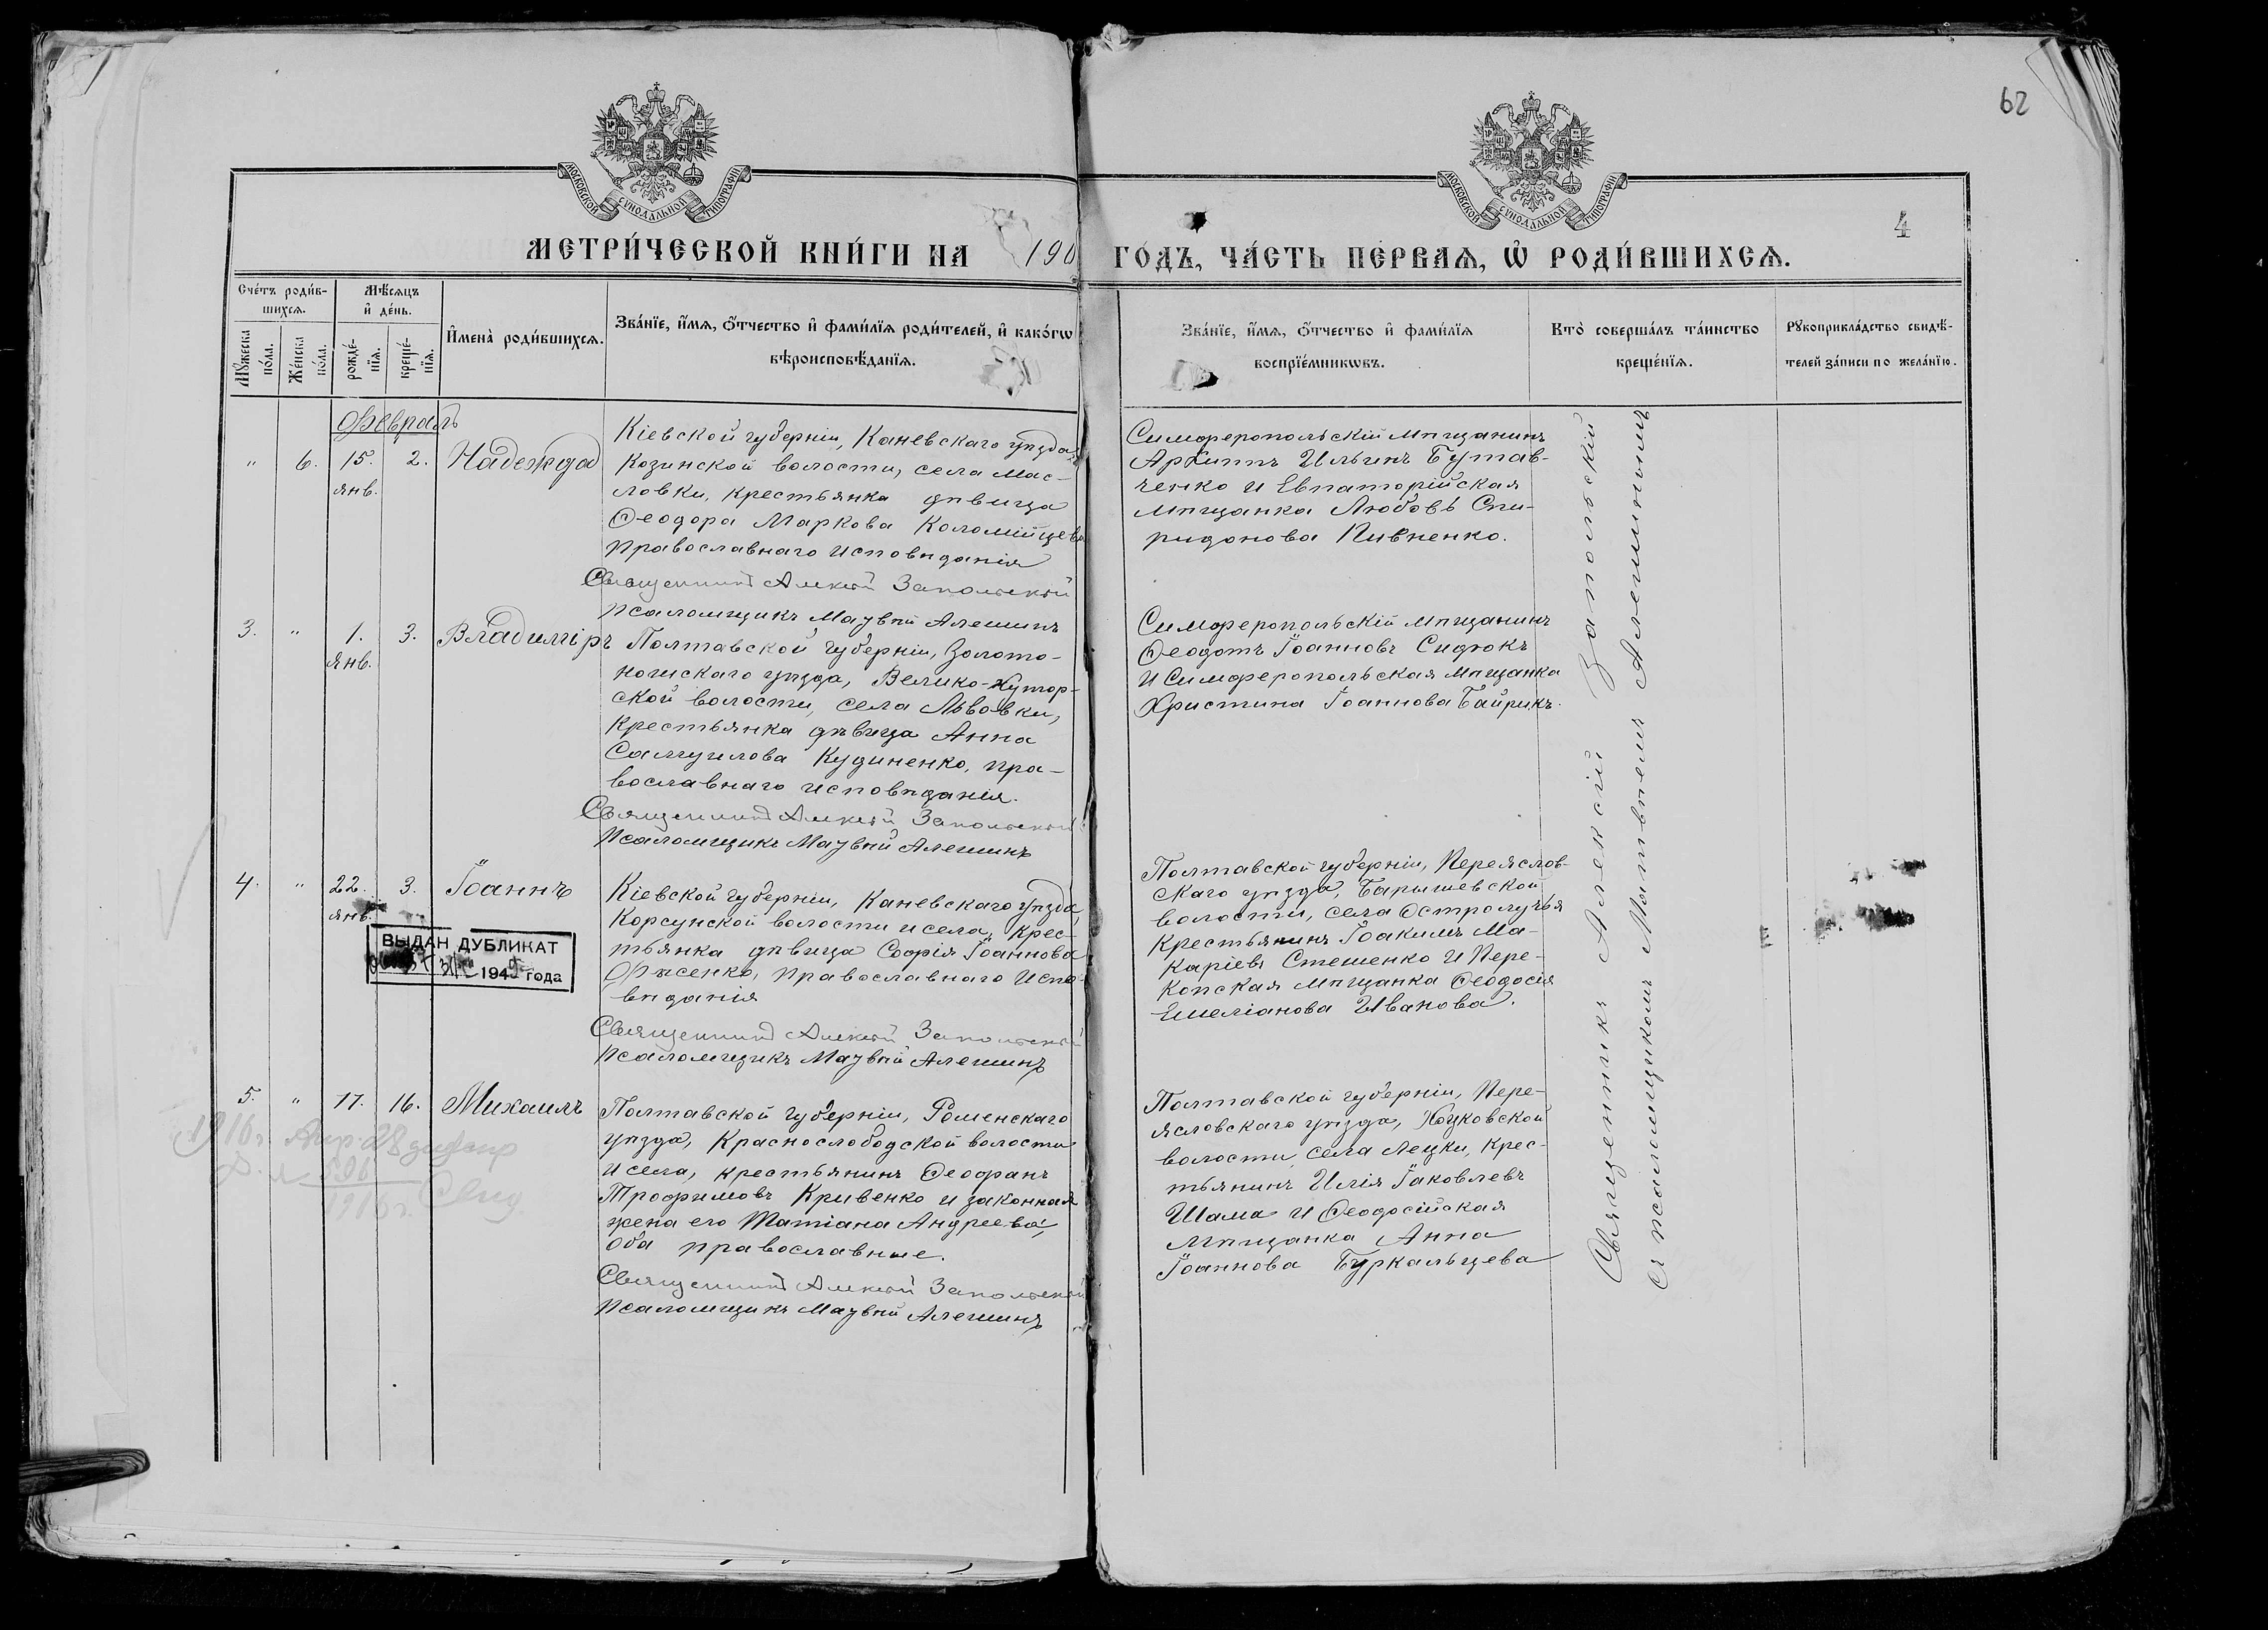 62
МОСКОВСКОЙ СѴНОДАЛЬНОЙ ТИПОГРАФІИ
МОСКОВСКОЙ СѴНОДАЛЬНОЙ ТИПОГРАФІИ
4
МЕТРИ́ЧЕСКОЙ КНИ́ГИ НА 190
ГО́ДЪ, ЧА́СТЬ ПЕ́РВАѦ, Ѡ҆ РОДИ́ВШИХСѦ.
Сче́тъ роди́в-
шихсѧ.
Мѣ́сяцъ
и҆ де́нь.
Мꙋ́жеска
по́ла.
Же́нска
по́ла.
рожде́-
нїѧ.
креще́-
нїѧ.
И҆мена̀ роди́вшихсѧ.
Зва́нїе, и҆́мѧ, ѻ҆́тчество и҆ фами́лїѧ роди́телей, и҆ како́гѡ
вѣроисповѣ́данїѧ.
Зва́нїе, и҆́мѧ, ѻ҆́тчество и҆ фами́лїѧ
воспрїе́мникѡвъ.
Кто̀ соверша́лъ та́инство
креще́нїѧ.
Рꙋкоприкла́дство свидѣ́-
телей за́писи по жела́нїю.
Февраль
" 6. 15. 2. Надежда
янв.
Кіевской губерніи, Каневскаго уѣзда,
Козинской волости, села Мас-
ловки, крестьянка дѣвица
Ѳеодора Маркова Коломійцева
православнаго исповѣданія
Священникъ Алексій Запольскій
Псаломщикъ Матвѣй Алешинъ
Симферопольскій мѣщанинъ
Архиппъ Ильинъ Бутав-
ченко и Евпаторійская
мѣщанка Любовь Спи-
ридонова Пивненко.
3. " 1. 3. Владиміръ
янв.
Полтавской губерніи, Золото-
ношскаго уѣзда, Велико-Хутор-
ской волости, села Львовки,
крестьянка дѣвица Анна
Самуилова Кудиненко, пра-
вославнаго исповѣданія.
Священникъ Алексій Запольскій
Псаломщикъ Матвѣй Алешинъ
Симферопольскій мѣщанинъ
Ѳеодотъ Іоанновъ Сидюкъ
и Симферопольская мѣщанка
Христина Іоаннова Байрикъ.
4. " 22. 3. Іоаннъ
янв.
Кіевской губерніи, Каневскаго уѣзда,
Корсунской волости и села, крес-
тьянка дѣвица Софія Іоаннова
православнаго испо-
вѣданія
Священникъ Алексій Запольскій
Псаломщикъ Матвѣй Алешинъ
ВЫДАН ДУБЛИКАТ
194 года
Полтавской губерніи, Переяслов-
скаго уѣзда, Барышевской
волости, села Остролучья
крестьянинъ Іоакимъ Ма-
каріевъ Стешенко и Пере-
копская мѣщанка Ѳеодосія
Емеліанова Иванова.
5. " 17. 16. Михаилъ
Полтавской губерніи, Роменскаго
уѣзда, Краснослободской волости
и села, крестьянинъ Ѳеофанъ
Трофимовъ Кривенко и законная
жена его Татіана Андреева,
оба православные.
Священникъ Алексій Запольскій
Псаломщикъ Матвѣй Алешинъ
1916г.
1916г.
Полтавской губерніи, Пере-
ясловскаго уѣзда, Хоцковской
волости, села Лецки, крес-
тьянинъ Илія Іаковлевъ
Шама и Ѳеодосійская
мѣщанка Анна
Іоаннова Буркальцева
Священникъ Алексій Запольскій
съ псаломщикомъ Матвѣемъ Алешинымъ